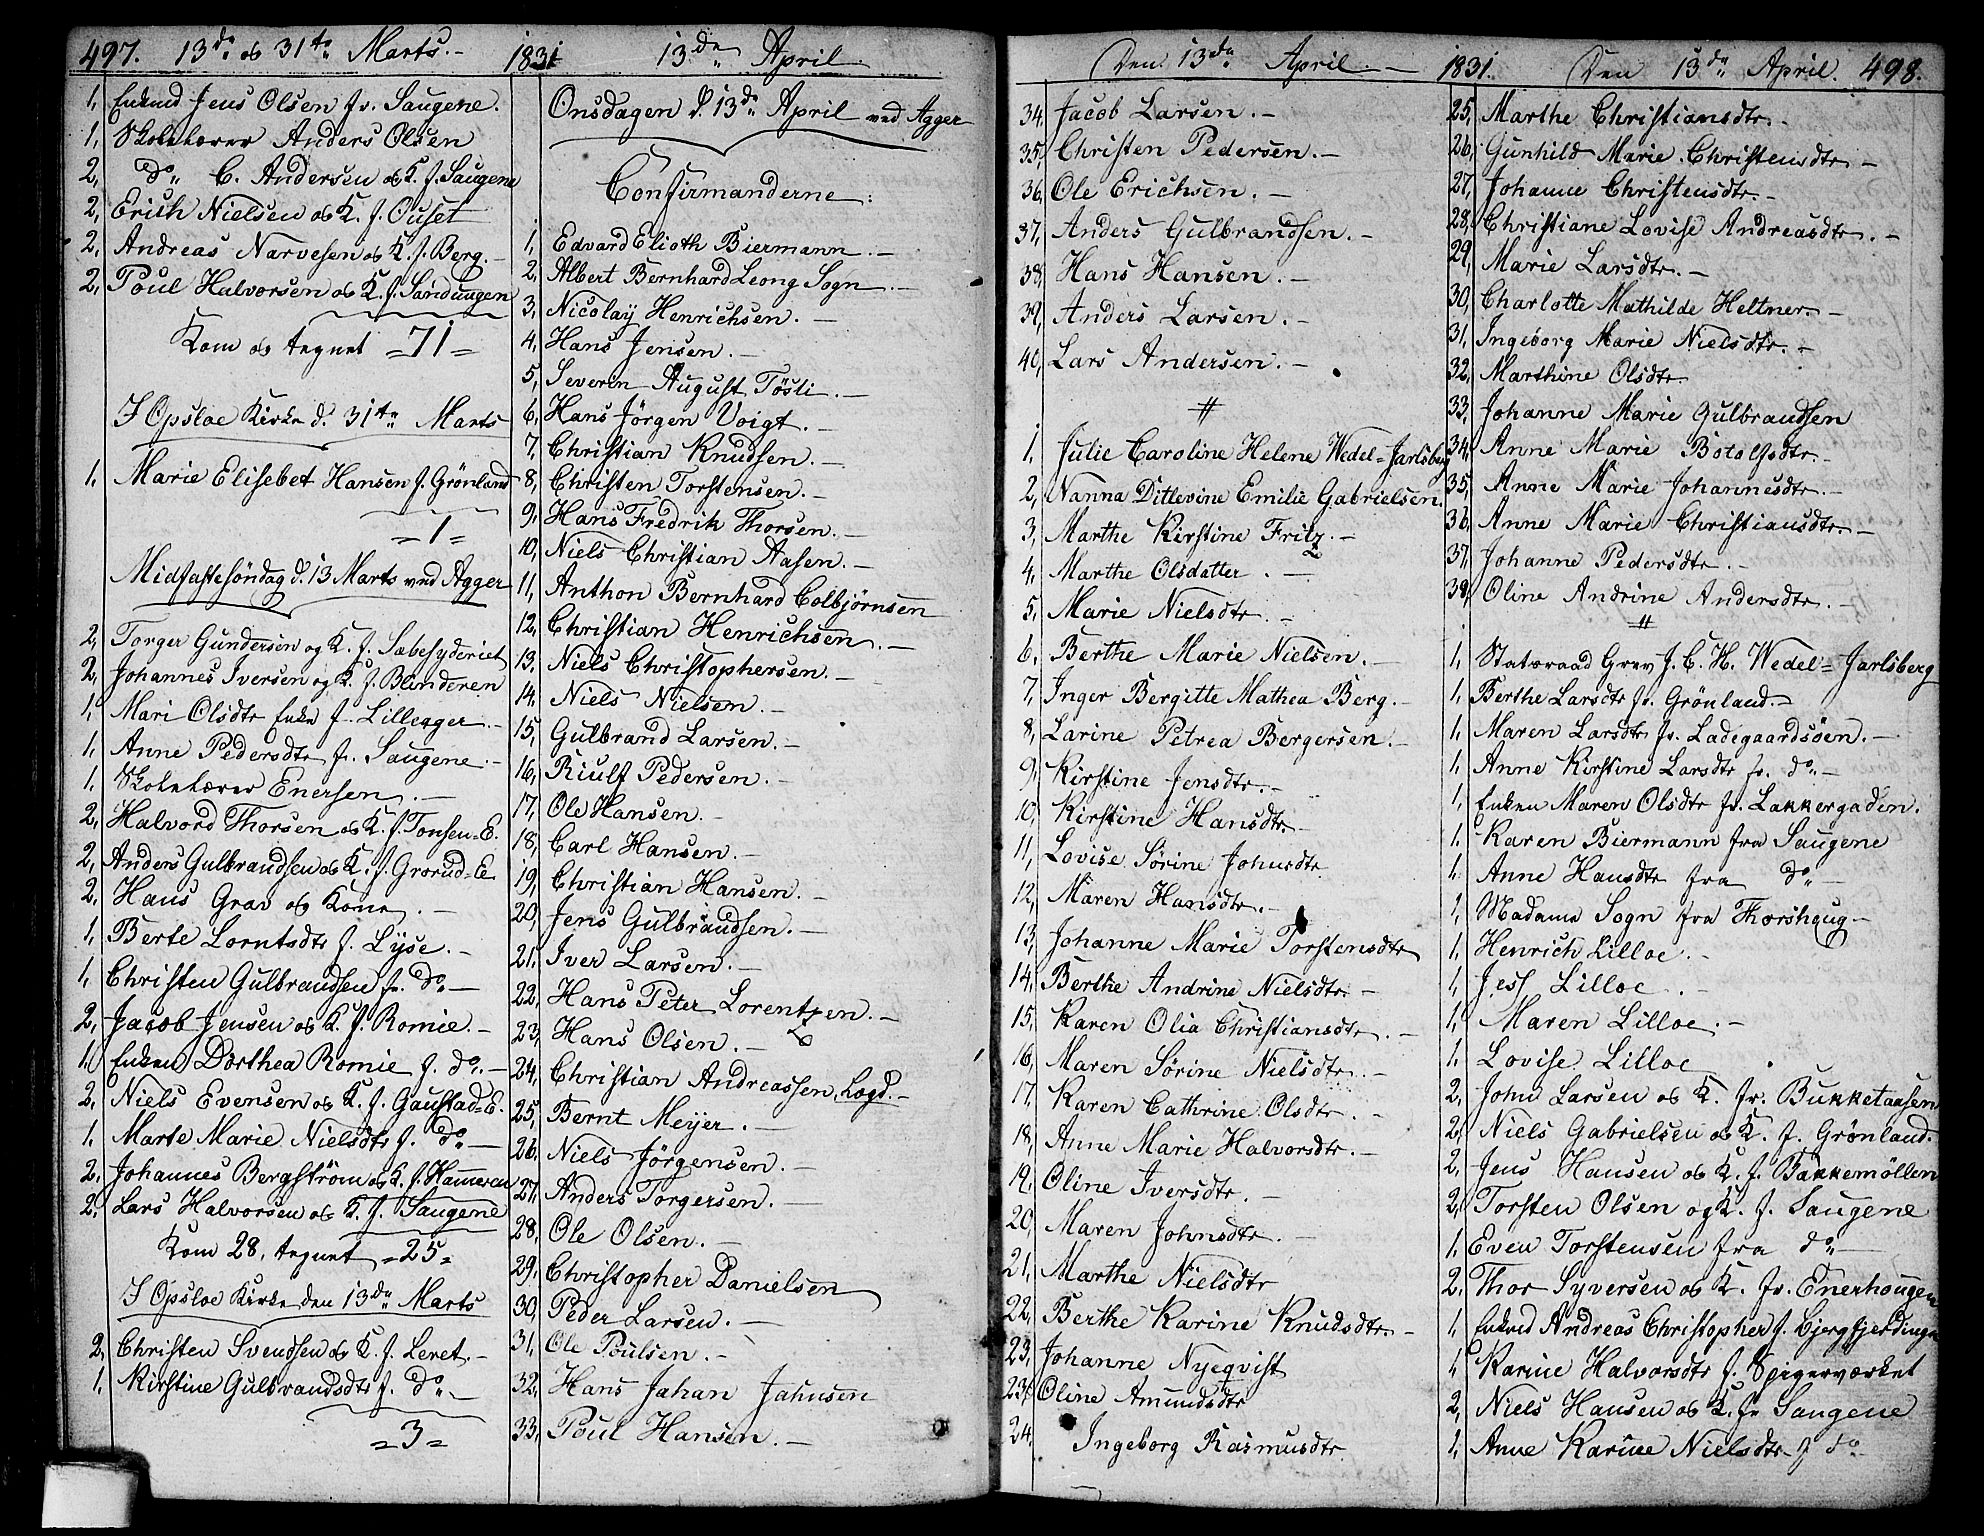 497. 13de og 31te Marts.
1, Enkend Jens Olsen fr. Saugene.
1, Skolelærer Anders Olsen
2, do. C. Andersen og K. f. Saugene
2, Erich Nielsen og K. f. Ouset
2, Andreas Narvesen og K. f. Berg.
2, Poul Halvorsen og K. f. Sandungen
Kom og tegnet =71=
I Opsloe Kirke d. 31te Marts
1. Marie Elisebet Hansen f. Grönland
=1=
Midfastesöndag d. 13 Marts ved Agger
2, Torger Gundersen og K. f. Sæbesyderiet
2, Johannes Iversen og K. f. Blinderen
1, Mari Olsdtr Enke f. Lillegger.
1, Anne Pedersdtr fr. Saugene.
1. Skolelærer Enersen.
2, Halvord Thorsen og K. f. Tonsen=E.
2, Anders Gulbrandsen og K. f. Grorud=E.
2, Hans Grav og Kone.
1, Berte Lorntsdtr f. Lÿse.
1, Christen Gulbrandsen fr. do.
2, Jacob Jensen og K. f. Romie.
1, Enken Dorthea Romie f. do.
2, Niels Evensen og K. f. Gaustad=E.
1, Marte Marie Nielsdtr f. do.
2, Johannes Bergström og K. f. Hammeren
2, Lars Halvorsen og K. f. Saugene
Kom 28, tegnet =25=
I Opsloe Kirke den 13de Marts
2, Christen Svendsen og K. f. Leret.
1. Kirstine Gulbrandsdtr f. do.
=3=
1831 13de April.
Onsdagen d. 13de April ved Agger
Confirmanderne:
1, Edvard Elioth Biermann.
2, Albert Bernhard Leong Sogn.
3, Nicolay Henrichsen.
4, Hans Jensen.
5, Severin August Tösti.
6, Hans Jörgen Voigt.
7, Christian Knudsen.
8, Christen Torstensen.
9, Hans Fredrik Thorsen.
10, Niels Christian Aasen.
11, Anthon Bernhard Colbjörnsen
12, Christian Henrichsen.
13, Niels Christophersen.
14, Niels Nielsen.
15, Gulbrand Larsen.
16, Riulf Pedersen.
17, Ole Hansen.
18, Carl Hansen.
19, Christian Hansen.
20, Jens Gulbrandsen.
21, Iver Larsen.
22, Hans Peter Lorentzen.
23, Hans Olsen.
24, Christian Andreassen, Logd.
25, Bernt Meyer.
26, Niels Jörgensen.
27, Anders Torgersen.
28, Ole Olsen.
29, Christopher Danielsen
30, Peder Larsen.
31, Ole Poulsen.
32, Hans Jahan Jahnsen
33, Poul Hansen.
Den 13de April.
34, Jacob Larsen.
35, Christen Pedersen.
36, Ole Erichsen.
37, Anders Gulbrandsen.
38, Hans Hansen.
39, Anders Larsen.
40, Lars Andersen.
#
1, Julie Caroline Helene Wedel=Jarlsberg
2, Nanna Ditlevine Emilie Gabrielsen.
3, Marthe Kirstine Fritz.
4, Marthe Olsdatter.
5, Marie Nielsdtr.
6, Berthe Marie Nielsen.
7, Inger Bergitte Mathea Berg.
8, Larine Petrea Bergersen.
9, Kirstine Jensdtr.
10, Kirstine Hansdtr.
11, Lovise Sörine Johnsdtr
12, Maren Hansdtr.
13, Johanne Marie Torstensdtr
14, Berthe Andrine Nielsdtr.
15, Karen Olia Christiansdtr.
16, Maren Sörine Nielsdtr.
17, Karen Cathrine Olsdtr.
18, Anne Marie Halvorsdtr.
19, Oline Iversdtr.
20, Maren Johnsdtr.
21, Marthe Nielsdtr
22, Berthe Karine Knudsdtr.
23, Johanne Nyeqvist
23, Oline Amundsdtr
24. Ingeborg Rasmusdtr
1831. Den 13de April. 498.
25, Marthe Christiansdtr.
26, Gunhild Marie Christensdtr.
27, Johanne Christensdtr.
28, Christiane Lovise Andreasdtr.
29, Marie Larsdtr.
30, Charlotte Mathilde Heltner.
31, Ingeborg Marie Nielsdtr.
32, Marthine Olsdtr.
33, Johanne Marie Gulbrandsen
34, Anne Marie Botolfsdtr.
35, Anne Marie Johannesdtr.
36, Anne Marie Christiansdtr.
37, Johanne Pedersdtr.
38, Oline Andrine Andersdtr.
#
1, Statsraad Grev J. C. H. Wedel=Jarlsberg
1, Berthe Larsdtr fr. Grönland.
1, Maren Larsdtr fr. Ladegaardsöen.
1, Anne Kirstine Larsdtr fr. do.
1, Enken Maren Olsdtr fr. Lakkergaden.
1. Karen Biermann fra Saugene
1. Anne Hansdtr fra do.
1, Madame Sogn fra Thorshaug
1, Henrich Lilloe.
1, Jess Lilloe.
1, Maren Lilloe.
1. Lovise Lilloe
2, John Larsen og K. fr. Bukketaasen
2, Niels Gabrielsen og K. f. Grönland.
2, Jens Hansen og K. f. Bakkemöllen
2, Torsten Olsen og K. f. Saugene
1. Even Torstensen fra do.
2. Thor Syversen og K. fr. Enerhougen
1, Enkend Andreas Christopher f. Bjergfjerdingen
1 Karine Halvorsdtr f. Spigerværket
2, Niels Hansen og K. fr Saugene
1, Anne Karine Nielsdtr f do